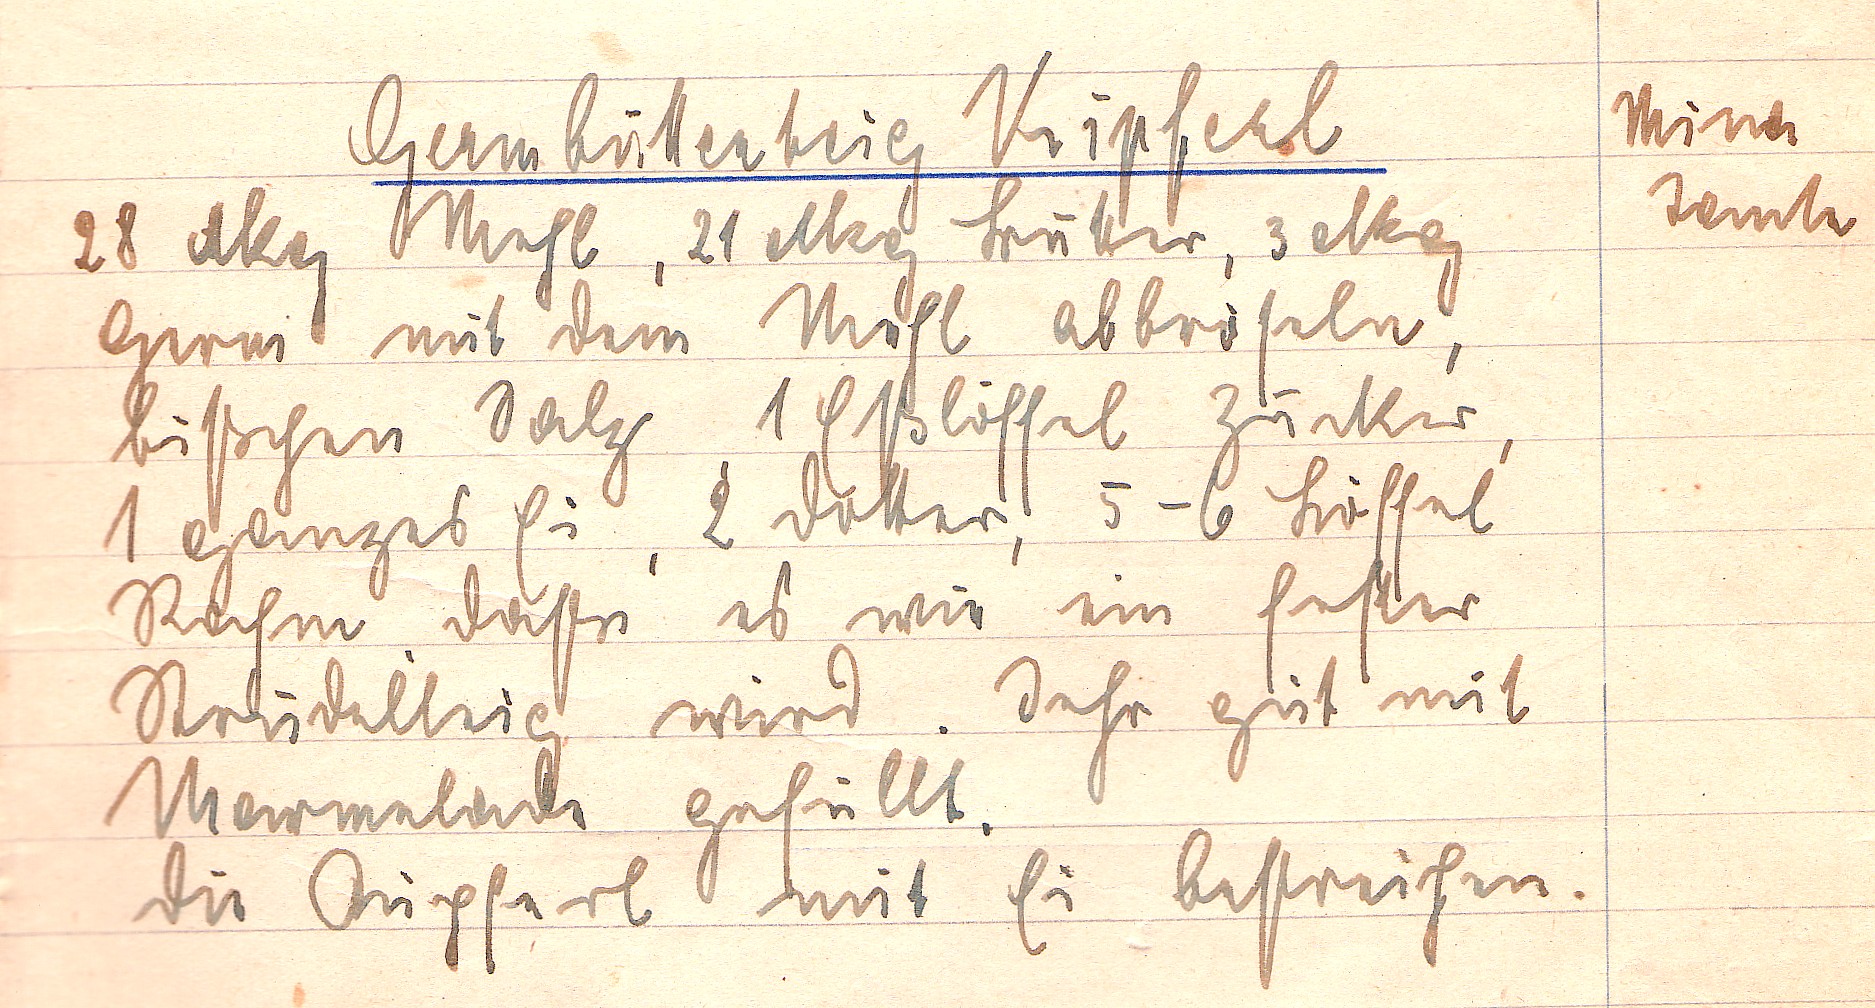 Germbutterteig Kipferl
Minna
Tante
28 dkg Mehl, 21 dkg Butter, 3 dkg
Germ mit dem Mehl abbröseln,
bißchen Salz, 1 Eßlöffel Zucker,
1 ganzes Ei, 2 Dotter, 5-6 Löffel
Rahm dass es wie ein fester
Strudelteig wird. Sehr gut mit
Marmelade gefüllt.
Die Kipferl mit Ei bestreichen.